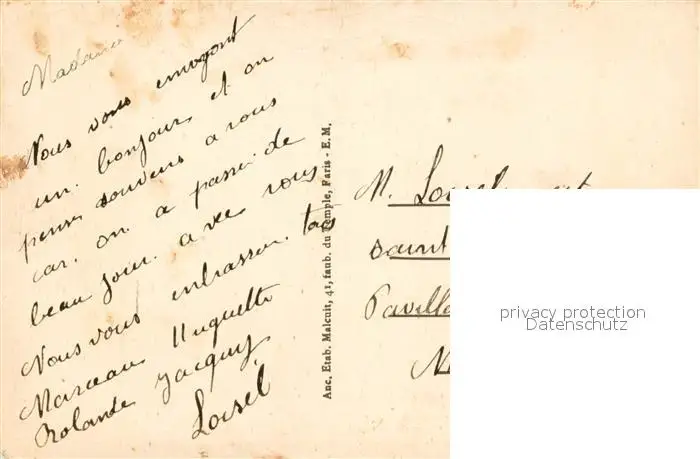 Madame
Nous vous envoyont
un bonjour et on
pense souvens a vous
car on a passé de
beau jour avec vous
Nous vous enbrasson tous
Marceau Huguette
Rolande Jacquy
Loisel
Anc. Etab. Malcuit, 41, faub. du Temple, Paris - E. M.
M. Loisel
saint
Pavill
privacy protection
Datenschutz